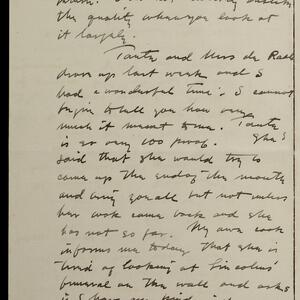 the quality when you look at
it largely.
Tante and Miss de Raasl
drove up last week and I
had a wonderful time. I cannot
begin to tell you how very
much it meant to me. Tante
is so very 100 proof. She
said that she would try to
come up the end of the month
and bring you all but not unless
her cook came back and she
has not so far. My own cook
informs me today that she is
tired of looking at Lincolns'
funeral on the wall and asks